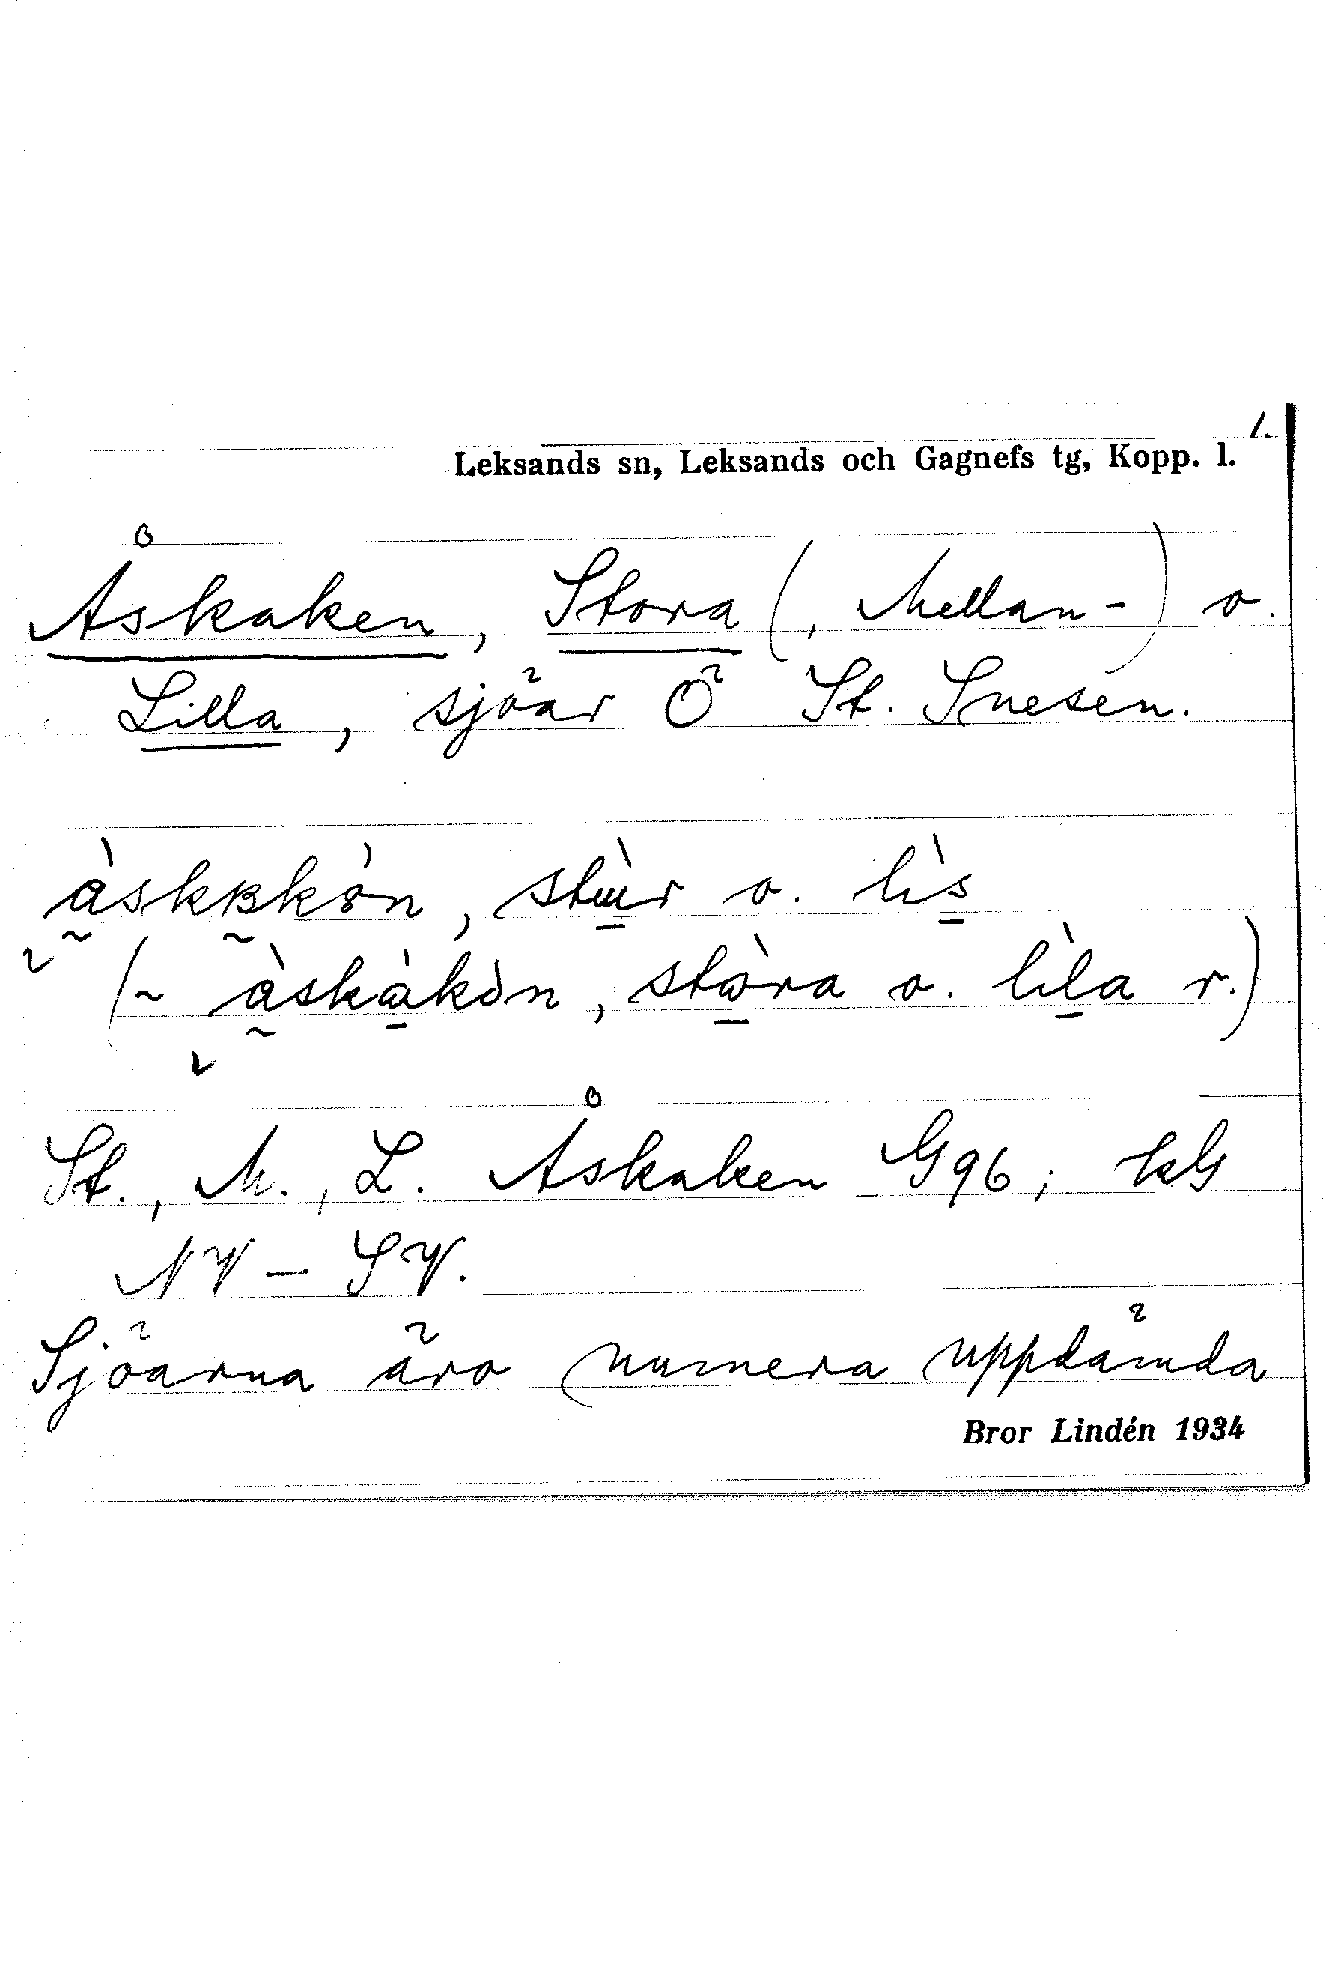 1.
Leksands sn, Leksands och Gagnefs tg, Kopp. l.
Åskaken, Stora (, Mellan-) o.
Lilla, sjöar Ö St. Snesen.
stùr o. lìs
(~ àskàkòn, stòra o. lìla r.)
St., M., L. Åskaken G96; kG
NV – SV.
Sjöarna äro numera uppdämda
Bror Lindén 1934